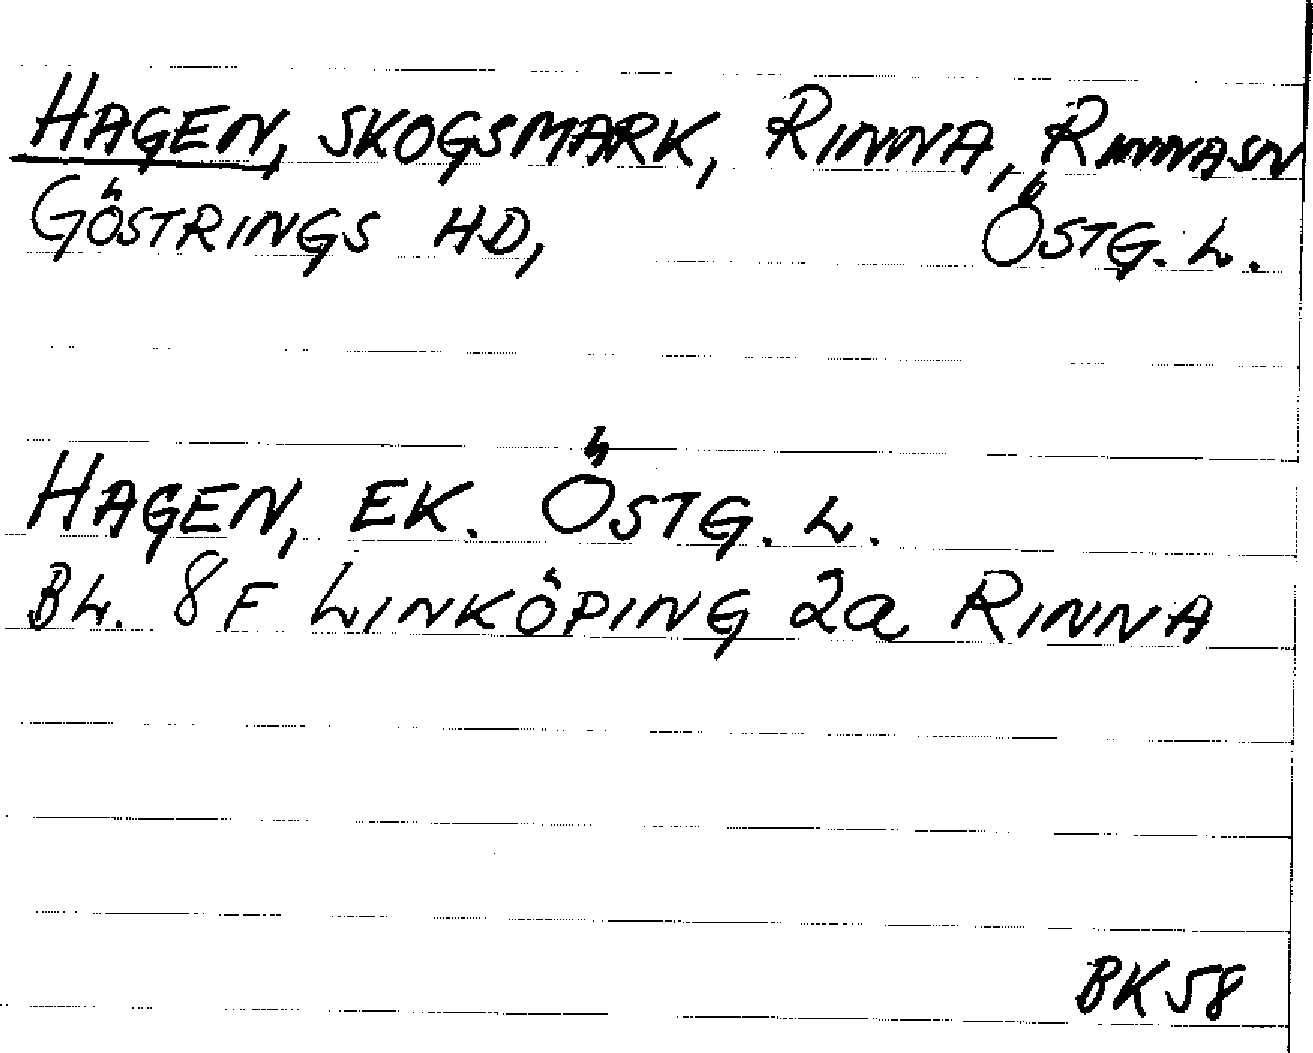 HAGEN, SKOGSMARK, RINNA, RINNA SN
GÖSTRINGS HD, ÖSTG. L.
HAGEN, EK. ÖSTG. L.
BL. 8F LINKÖPING 2a RINNA
BK58